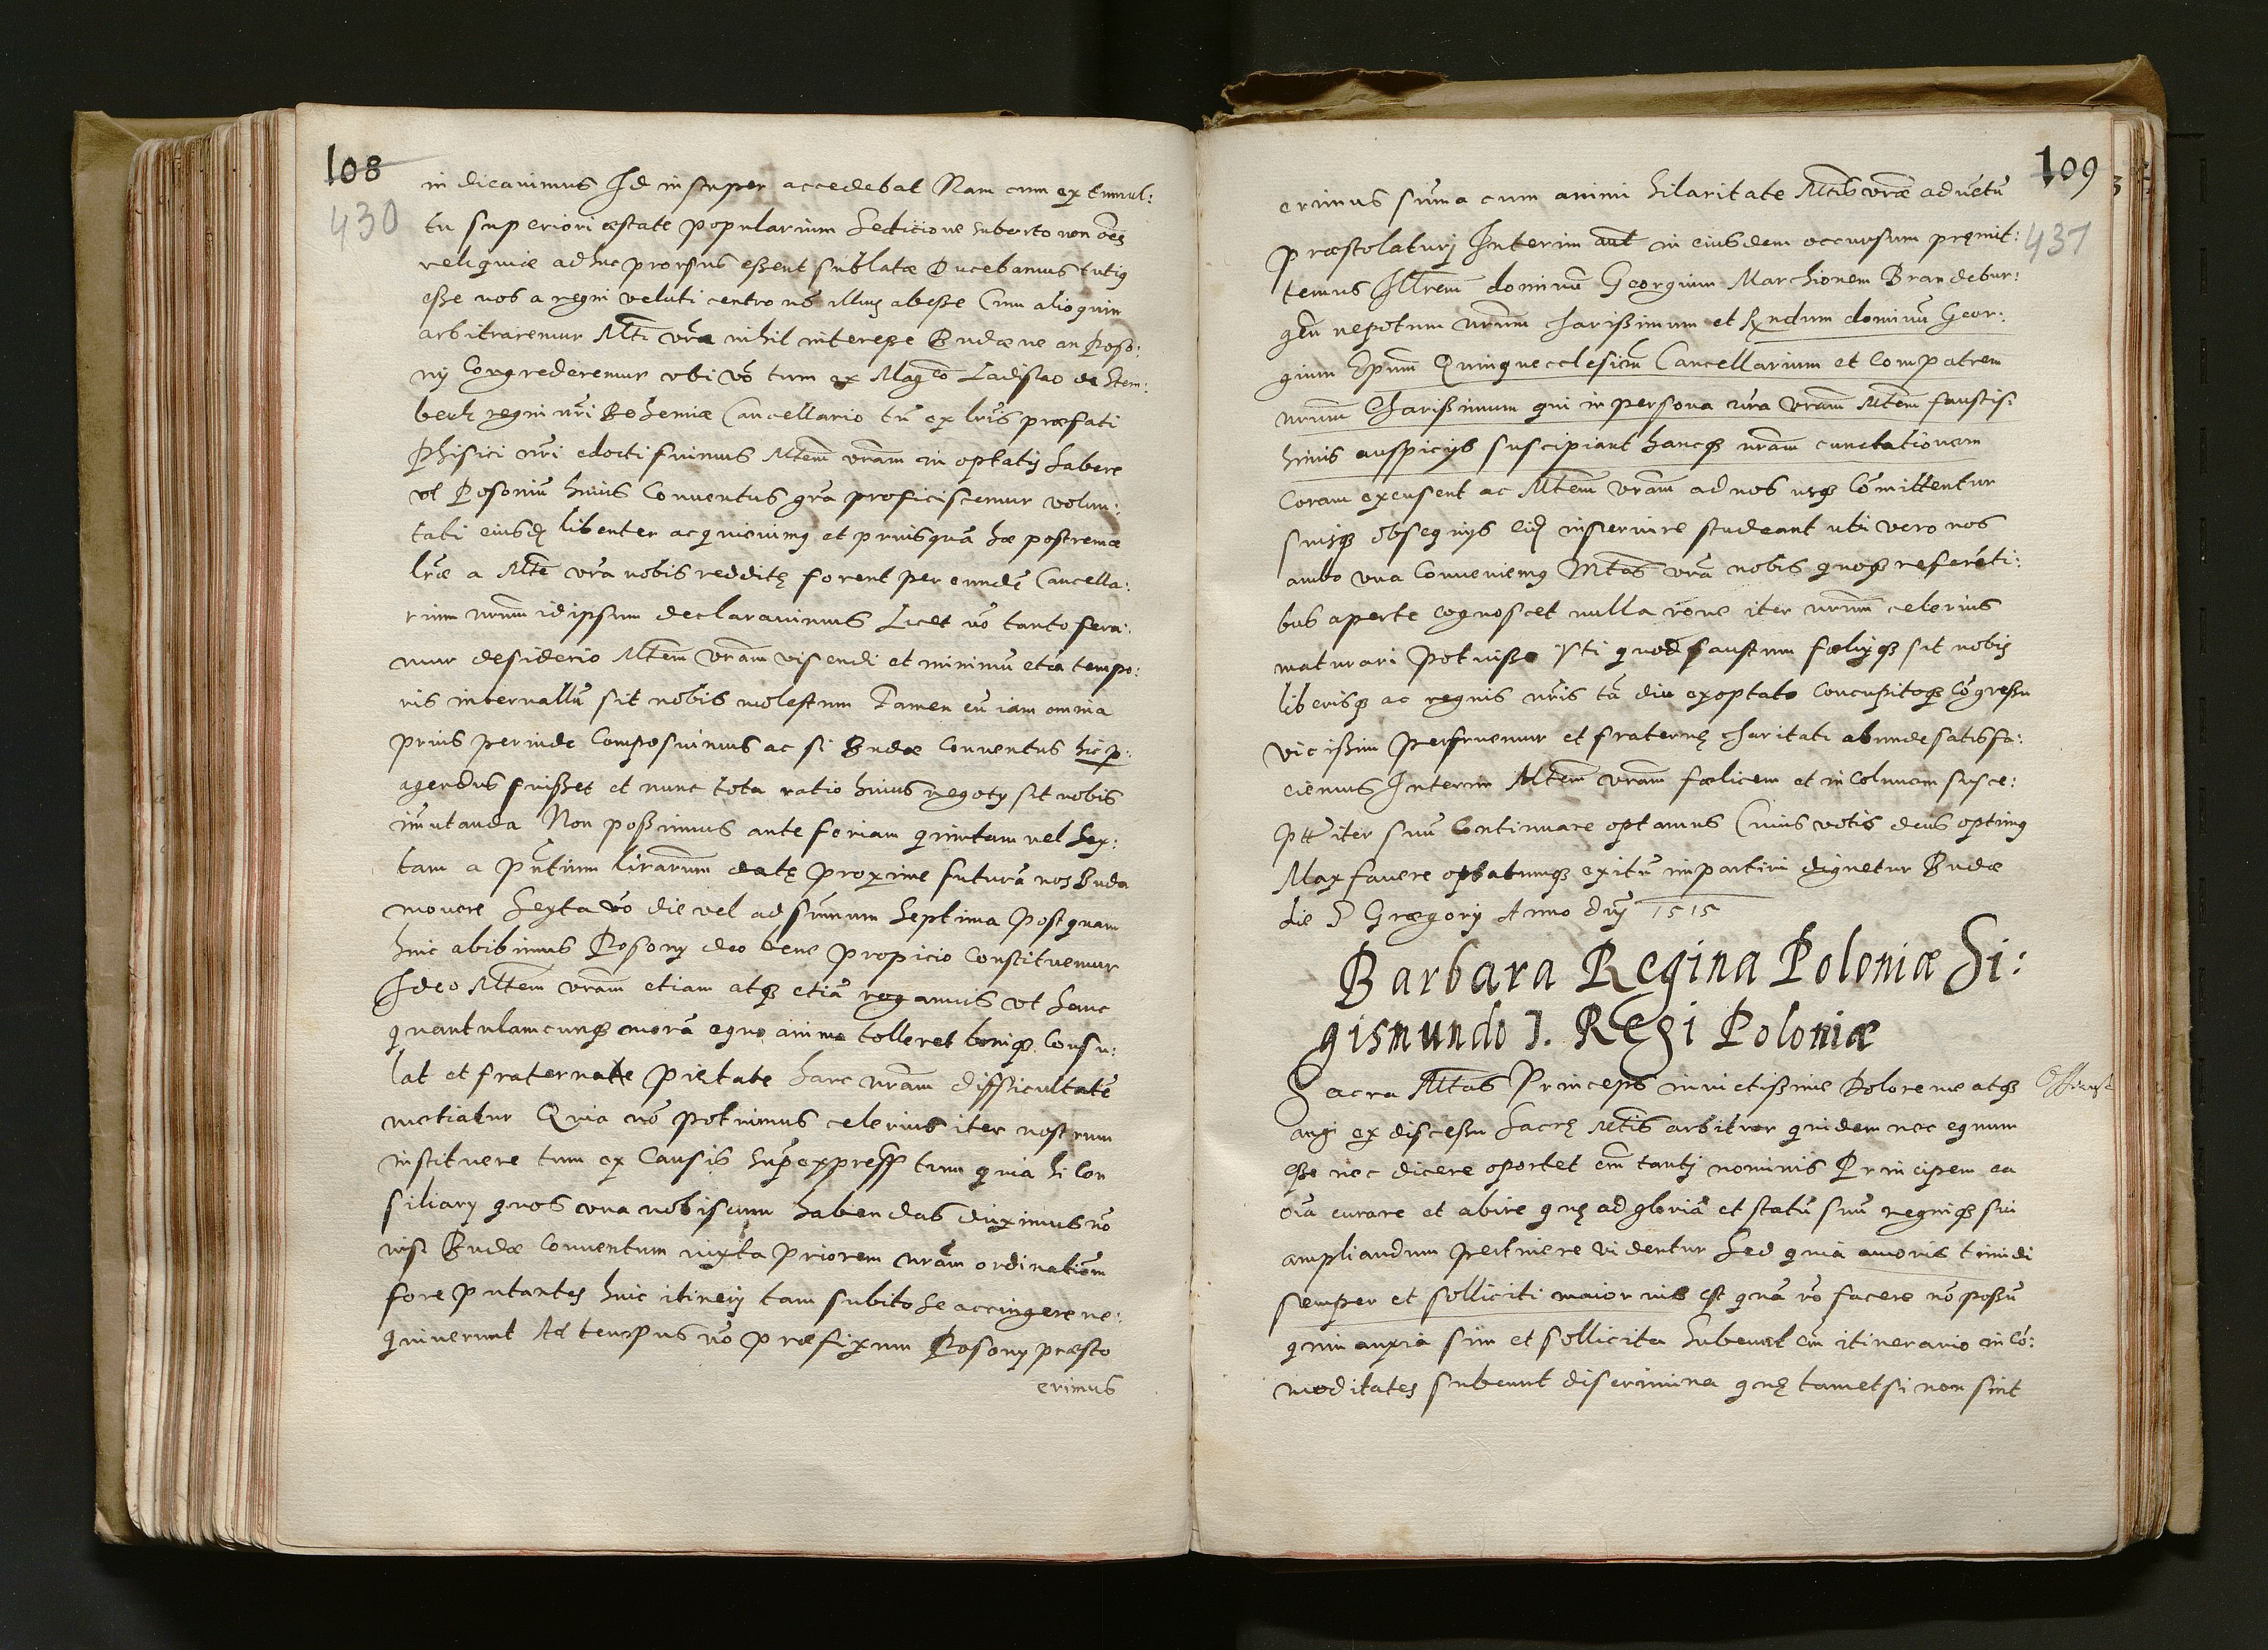 108
430
in dicavimus Id in super accedebat Nam cum ex tumul:
tu superiori æstate popularium sedicione suborto non oẽs
reliquiæ adhuc prorsus essent sublatæ Ducebamus tutiꝰ
esse nos a regni veluti centro nõ illuꝫ abesse Cum alioquin
arbitraremur Mti vrã nihil interesse Budæ ne an Poso:
nÿ Congrederemur vbi võ tum ex Magco Ladislao de Stem:
berk regni nri Bohemiæ Cancellario tũ ex lris præfati
Phisici nri edocti fuimus Mtem vram in optatis habere
vt Posoniũ huius Conventus grã proficiscemur volun:
tati eiusdẽ libenter acquievimꝰ et priusquã hæ postremæ
lræ a Mte vrã nobis redditę forent per eundẽ Cancella:
rium nrum id ipsum declaravimus Licet võ tanto fera:
mur desiderio Mtem vram visendi et minimũ etiã tempo:
ris intervallũ sit nobis molestum Tamen cũ iam omnia
prius perinde Composuimus ac si Budæ Conventus hic p:
agendus fuisset et nunc tota ratio huius negotÿ sit nobis
imutanda Non possumus ante feriam quintam vel Sex:
tam a pñtium lrarum datę proxime futurã nos Buda
movere Sexta võ die vel ad sumum Septima Postquam
hinc abibimus Posonÿ deo bene propicio Constituemur
Ideo Mtem vram etiam atqꝫ etiã rogamus vt hanc
quantulamcunqꝫ morã equo animo tolleret boniqꝫ Consu:
lat et fraternate pietate hanc nram difficultatẽ
metiatur Quia nõ potuimus celerius iter nostrum
instituere tum ex Causis supexpress tum quia hi Con
siliarÿ quos vna nobiscum habendas duximus nõ
nisi Budæ Conventum iuxta priorem nram ordinatiõm
fore putantes huic itineri tam subito se accingere ne:
quiverunt Ad tempus võ præfixum Posonÿ præsto
erimus
109
431
erimus suma cum animi hilaritate Mtis vræ adventũ
præstolaturi Interim aut in eiusdem occursum pręmit:
temus Illrem dominũ Georgium Marchionem Brandebur:
gen nepotum nrum charissimum et Rndum dominũ Geor:
gium Epum Quinqueclesien Cancellarium et Compatrem
nrum Charissimum qui in persona nra vram Mtem faustis:
simis auspicÿs suscipiant hancqꝫ nram cunctationem
Coram excusent ac Mtem vram ad nos usqꝫ Comittentur
suisqꝫ obsequÿs eidẽ inservire studeant ubi vero nos
ambo vna Conveniemꝰ Mtas vrã nobis quoqꝫ referẽti:
bus aperte cognoscet nulla rõne iter nrum celerius
maturari potuisse Vti quod faustum fœlixqꝫ sit nobis
liberisqꝫ ac regnis nris tã diu exoptato Concusitoqꝫ Cõgressu
vicissim perfruemur et fraternę charitati abunde satisfa:
ciemus Interim Mtem vram fœlicem et incolumem susce:
ptũ iter suũ Continuare optamus Cuius votis deus optimꝰ
Max favere optatumqꝫ exitũ impartiri dignetur Budæ
die S Grægorÿ Anno dnÿ 1515
Barbara Regina Poloniæ Si:
gismundo I. Regi Poloniæ
Sacra Mtas Princeps invictissime Dolore me atqꝫ
angi ex discessu Sacrę Mtis arbitror quidem nec equum
esse nec dicere oportet em tanti nominis Principem ea
oĩa curare et abire quę ad gloriã et statũ suũ regniqꝫ sui
ampliandum pertinere videntur Sed quia amoris timidi
semper et solliciti maior vis est quã võ facere nõ possũ
quin anxia sim et sollicita Subeunt em itinerario in Cõ:
moditates subeunt discrimina quę tametsi non sint